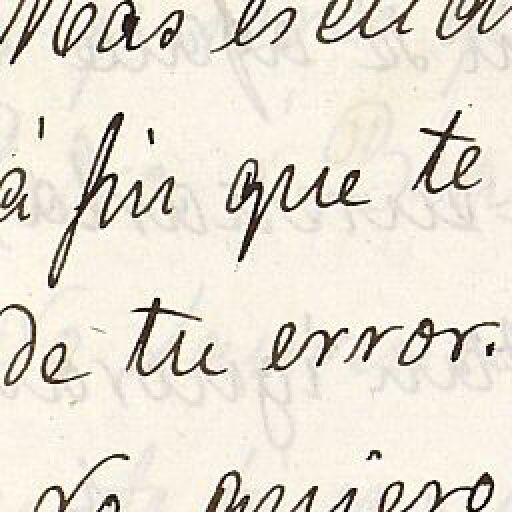 Mas escu
á fin que te
de tu error.
No quiero